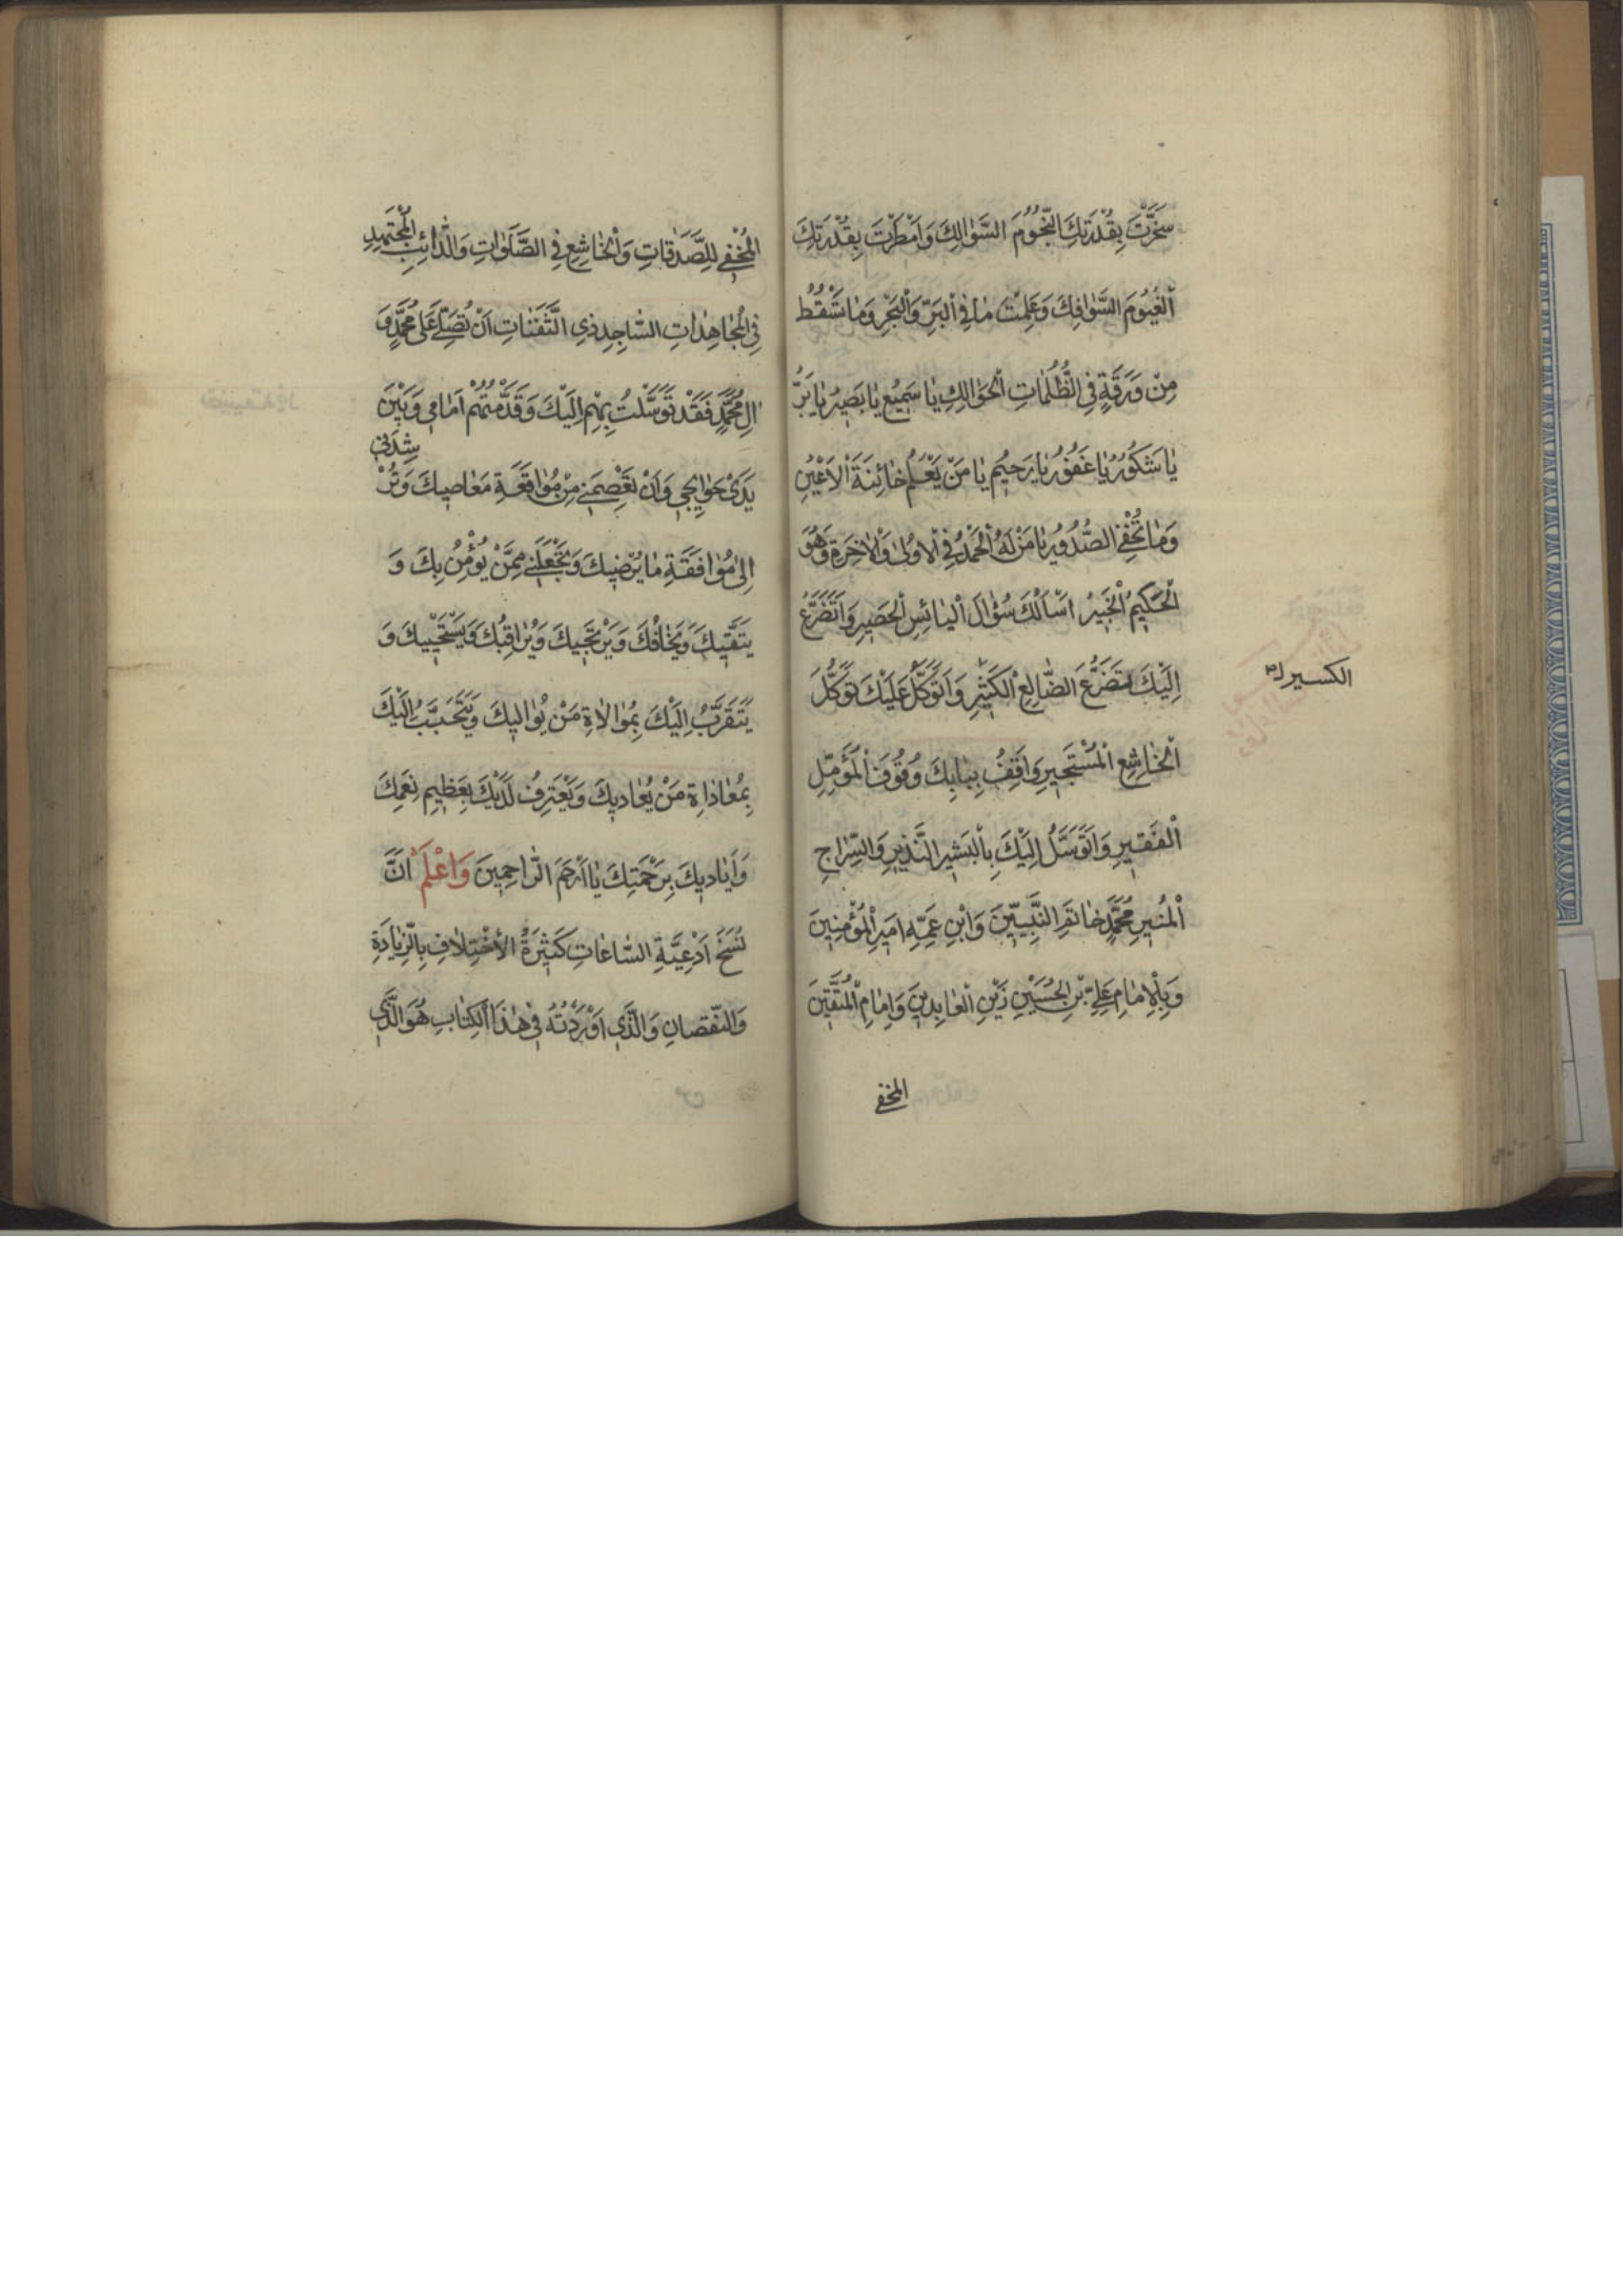 سَخَّرْتَ بِقُدْرَتِكَ النُّجُومَ السَّوَالِكَ وَاَمْطَرْتَ بِقُدْرَتِكَ
الْغُيُومَ السَّوَافِكَ وَعَلِمْتَ مَا فِي الْبَرِّ وَالْبَحْرِ وَمَا تَسْقُطُ
مِنْ وَرَقَةٍ فِي الظُّلُمَاتِ الْحَوَالِكِ يَا سَمِيعُ يَا بَصِيرُ يَا بَرُّ
يَا شَكُورُ يَا غَفُورُ يَا رَحِيمُ يَا مَنْ يَعْلَمُ خَائِنَةَ الْاَعْيُنِ
وَمَا تُخْفِي الصُّدُورُ يَا مَنْ لَهُ الْحَمْدُ فِي الْاُولٰى وَالْاٰخِرَةِ وَهُوَ
الْحَكِيمُ الْخَبِيرُ اَسْاَلُكَ سُؤَالَ الْبَائِسِ الْحَصِيرِ وَاَتَضَرَّعُ
اِلَيْكَ تَضَرُّعَ الضَّالِعِ الْكَثِيرِ وَاَتَوَكَّلُ عَلَيْكَ تَوَكُّلَ
الكسير
الْخَاشِعِ الْمُسْتَجِيرِ وَاَقِفُ بِبَابِكَ وُقُوفَ الْمُؤَمِّلِ
الْفَقِيرِ وَاَتَوَسَّلُ اِلَيْكَ بِالْبَشِيرِ النَّذِيرِ وَالسِّرَاجِ
الْمُنِيرِ مُحَمَّدٍ خَاتَمِ النَّبِيِّينَ وَابْنِ عَمِّهِ اَمِيرِ الْمُؤْمِنِينَ
وَبِالْاِمَامِ عَلِيِّ بْنِ الْحُسَيْنِ زَيْنِ الْعَابِدِينَ وَاِمَامِ الْمُتَّقِينَ
المخفي
الْمُخْفِي لِلصَّدَقَاتِ وَالْخَاشِعِ فِي الصَّلَوَاتِ وَالدَّائِبِ الْمُجْتَهِدِ
فِي الْمُجَاهِدَاتِ السَّاجِدِ ذِي الثَّفَنَاتِ اَنْ تُصَلِّيَ عَلٰى مُحَمَّدٍ وَ
اٰلِ مُحَمَّدٍ فَقَدْ تَوَسَّلْتُ بِهِمْ اِلَيْكَ وَقَدَّمْتُهُمْ اَمَامِي وَبَيْنَ
يَدَيْ حَوَائِجِي وَاَنْ تَعْصِمَنِي مِنْ مُوَاقَعَةِ مَعَاصِيكَ وَتُرْشِدَنِي
اِلٰى مُوَافَقَةِ مَا يُرْضِيكَ وَتَجْعَلَنِي مِمَّنْ يُؤْمِنُ بِكَ وَ
يَتَّقِيكَ وَيَخَافُكَ وَيَرْتَجِيكَ وَيُرَاقِبُكَ وَيَسْتَحْيِيكَ وَ
يَتَقَرَّبُ اِلَيْكَ بِمُوَالَاةِ مَنْ يُوَالِيكَ وَيَتَحَبَّبُ اِلَيْكَ
بِمُعَادَاةِ مَنْ يُعَادِيكَ وَيَعْتَرِفُ لَدَيْكَ بِعَظِيمِ نِعَمِكَ
وَاَيَادِيكَ بِرَحْمَتِكَ يَا اَرْحَمَ الرَّاحِمِينَ وَاعْلَمْ اَنَّ
نُسَخَ اَدْعِيَةِ السَّاعَاتِ كَثِيرَةُ الْاِخْتِلَافِ بِالزِّيَادَةِ
وَالنُّقْصَانِ وَالَّذِي اَوْرَدْتُهُ فِي هٰذَا الْكِتَابِ هُوَ الَّذِي